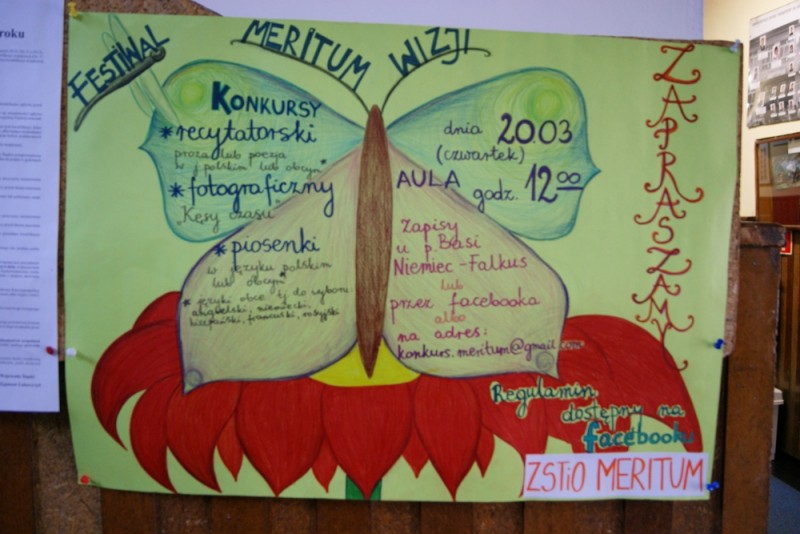 roku
FESTIWAL
MERITUM
WIZJI
KONKURSY
*recytatorski
proza lub poezja
w j. polskim lub obcym*
*fotograficzny
"Kęsy czasu"
*piosenki
w języku polskim
lub obcym*
* języki obce tj do wyboru:
angielski, niemiecki,
hiszpański, francuski, rosyjski
dnia 20.03
(czwartek)
AULA godz. 12⁰⁰
Zapisy
u p. Basi
Niemiec-Falkus
lub
przez facebooka
albo
na adres:
konkurs.meritum@gmail.com
ZAPRASZAMY
Regulamin
dostępny na
facebooku
ZSTiO MERITUM